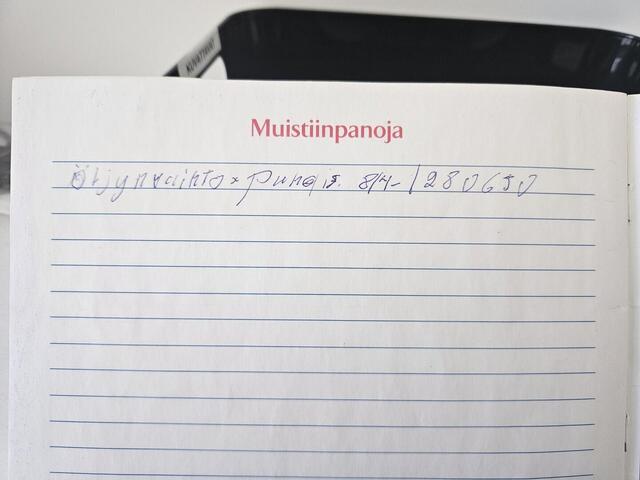 Muistiinpanoja
Öljynvaihto x puhdis. 8/4- / 280650